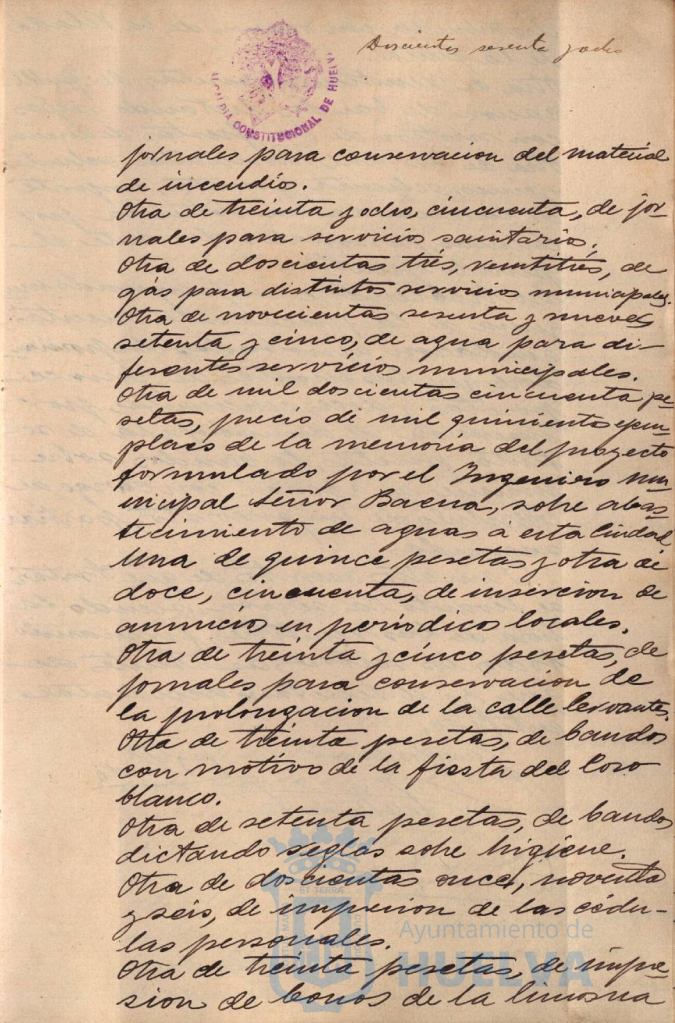 Doscientos sesenta y ocho
ALCALDIA CONSTITUCIONAL DE HUELVA
jornales para conservacion del material
de incendios.
Otra de treinta y ocho, cincuenta, de jor-
nales para servicios sanitarios.
Otra de doscientas trés, veintitrés, de
gas para distintos servicios municipales.
Otra de novecientas sesenta y nueve,
setenta y cinco, de agua para di-
ferentes servicios municipales.
Otra de mil doscientas cincuenta pe-
setas, precio de mil quinientos ejem-
plares de la memoria del proyecto
formulado por el Ingeniero mu-
nicipal Señor Baena, sobre abas-
tecimiento de aguas á esta Ciudad
Una de quince pesetas y otra de
doce, cincuenta, de insercion de
anuncios en periódicos locales.
Otra de treinta y cinco pesetas, de
jornales para conservacion de
la prolongacion de la calle Cervantes.
Otra de treinta pesetas, de bandos
con motivo de la fiesta del Coso
blanco.
Otra de setenta pesetas, de bandos
dictando reglas sobre higiene.
Otra de doscientas once, noventa
y seis, de impresion de las cédu-
las personales.
Otra de treinta pesetas, de impre-
sion de bonos de la limosna
Ayuntamiento de
HUELVA